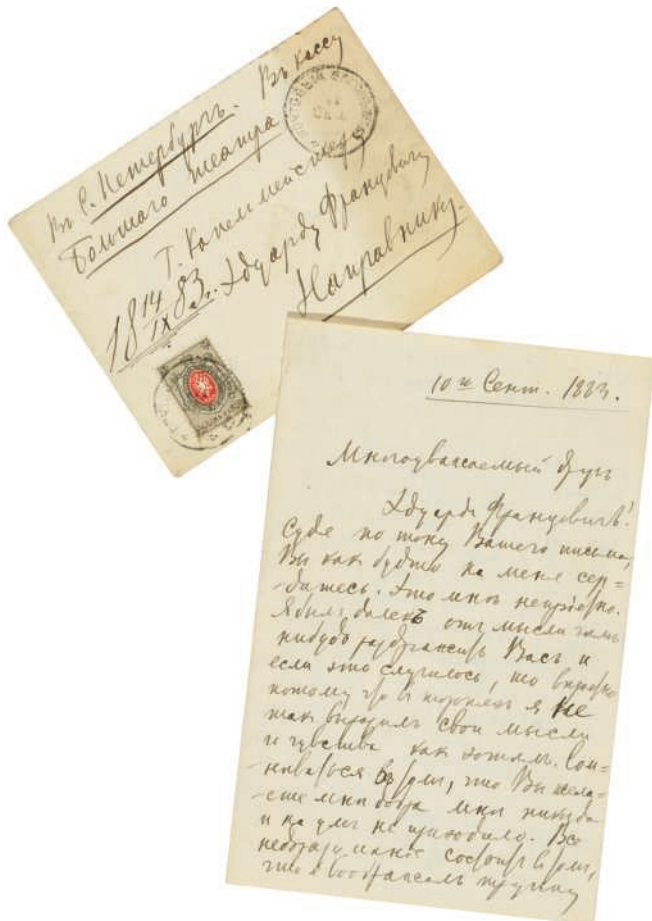 Въ С. Петербургъ. Въ кассу
Большаго театра
Г. Капельмейстеру
Эдуарду Францовичу
Направнику.
18 14/IX 83 г.
10го Сент. 1883.
Многоуважаемый другъ
Эдуардъ Францовичъ!
Судя по тону Вашего письма,
Вы какъ будто на меня сер=
=дитесь. Это мнѣ
Я былъ далекъ отъ мысли чѣмъ
нибудь раздражить Васъ и
если это случилось, то вѣроятно
потому что я не
такъ выразилъ свои мысли
и чувства какъ хотѣлъ. Сом=
=нѣваться въ томъ, что Вы жела=
=ете мнѣ добра мнѣ никогда
и на умъ не приходило. Все
состоитъ въ томъ,
что я воображалъ